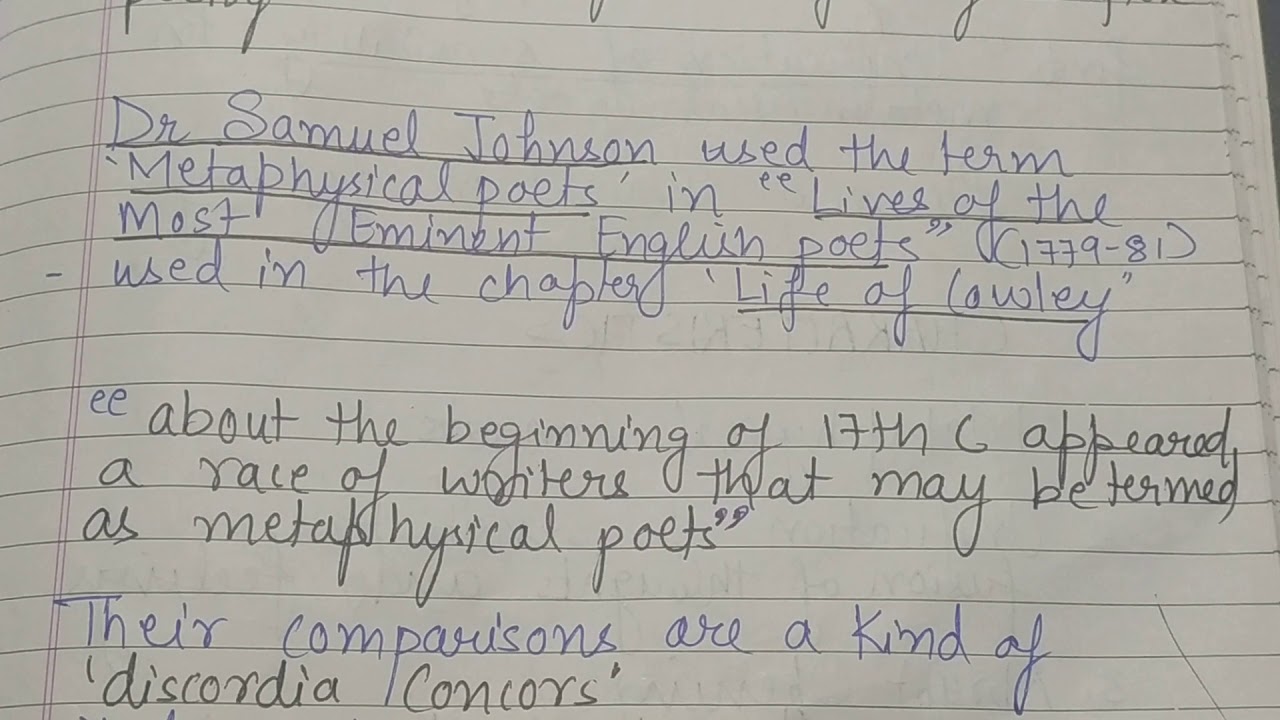 Dr Samuel Johnson used the term
'Metaphysical poets' in "Lives of the
Most Eminent English poets" (1779-81)
- used in the chapter 'Life of Cowley"
"about the beginning of 17th C appeared
a race of writers that may be termed
as metaphysical poets"
Their comparisons are a kind of
'discordia Concors'